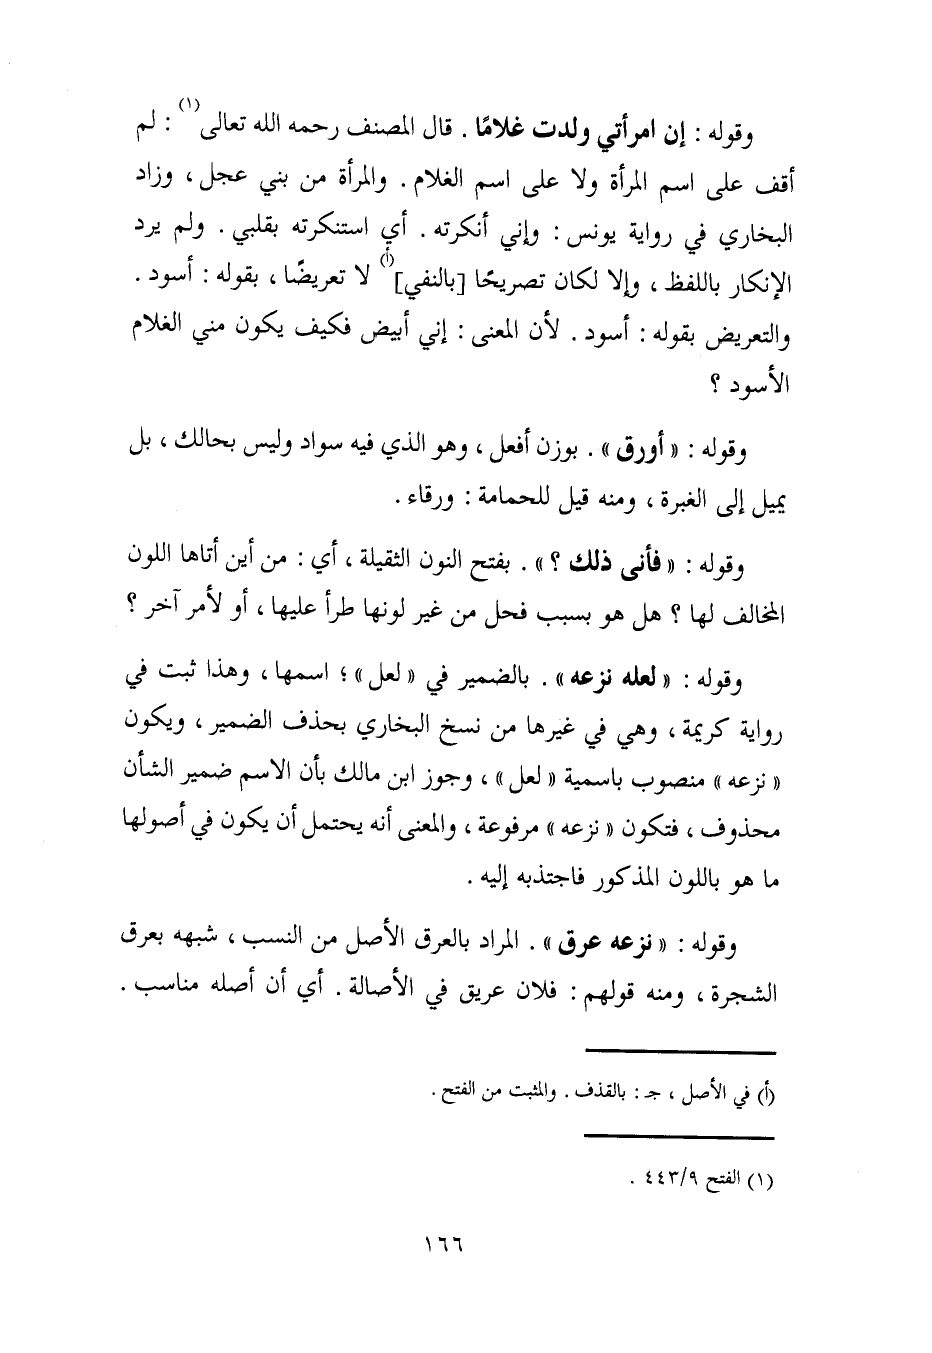 وقوله : إن امرأتي ولدت غلامًا . قال المصنف رحمه الله تعالى(١) : لم
أقف على اسم المرأة ولا على اسم الغلام . والمرأة من بني عجل ، وزاد
البخاري في رواية يونس : وإني أنكرته . أي استنكرته بقلبي . ولم يرد
الإنكار باللفظ ، وإلا لكان تصريحًا [بالنفي](أ) لا تعريضًا ، بقوله : أسود .
والتعريض بقوله : أسود . لأن المعنى : إني أبيض فكيف يكون مني الغلام
الأسود ؟
وقوله : « أورق » . بوزن أفعل ، وهو الذي فيه سواد وليس بحالك ، بل
يميل إلى الغبرة ، ومنه قيل للحمامة : ورقاء .
وقوله : « فأنى ذلك ؟ » . بفتح النون الثقيلة ، أي : من أين أتاها اللون
المخالف لها ؟ هل هو بسبب فحل من غير لونها طرأ عليها ، أو لأمر آخر ؟
وقوله : « لعله نزعه » . بالضمير في « لعل » ؛ اسمها ، وهذا ثبت في
رواية كريمة ، وهي في غيرها من نسخ البخاري بحذف الضمير ، ويكون
« نزعه » منصوب باسمية « لعل » ، وجوز ابن مالك بأن الاسم ضمير الشأن
محذوف ، فتكون « نزعه » مرفوعة ، والمعنى أنه يحتمل أن يكون في أصولها
ما هو باللون المذكور فاجتذبه إليه .
وقوله : « نزعه عرق » . المراد بالعرق الأصل من النسب ، شبهه بعرق
الشجرة ، ومنه قولهم : فلان عريق في الأصالة . أي أن أصله مناسب .
(أ) في الأصل ، جـ : بالقذف . والمثبت من الفتح .
(١) الفتح ٩/٤٤٣ .
١٦٦